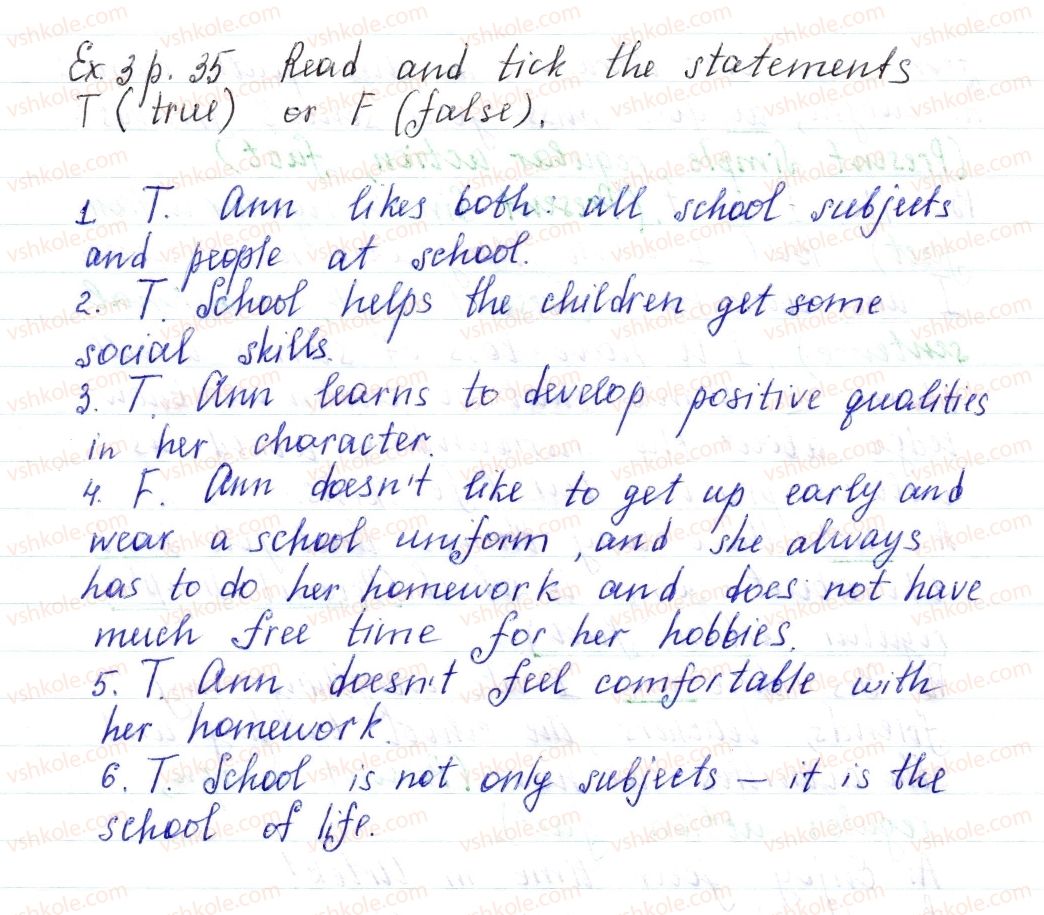 Ex. 3 p. 35 Read and tick the statements
T (true) or F (false).
1 T. Ann likes both all school subjects
and people at school.
2. T. School helps the children get some
social skills.
3. T. Ann learns to develop positive qualities
in her character.
4. F. Ann doesn't like to get up early and
wear a school uniform, and she always
has to do her homework and does not have
much free time for her hobbies.
5. T. Ann doesn't feel comfortable with
her homework.
6. T. School is not only subjects – it is the
school of life.